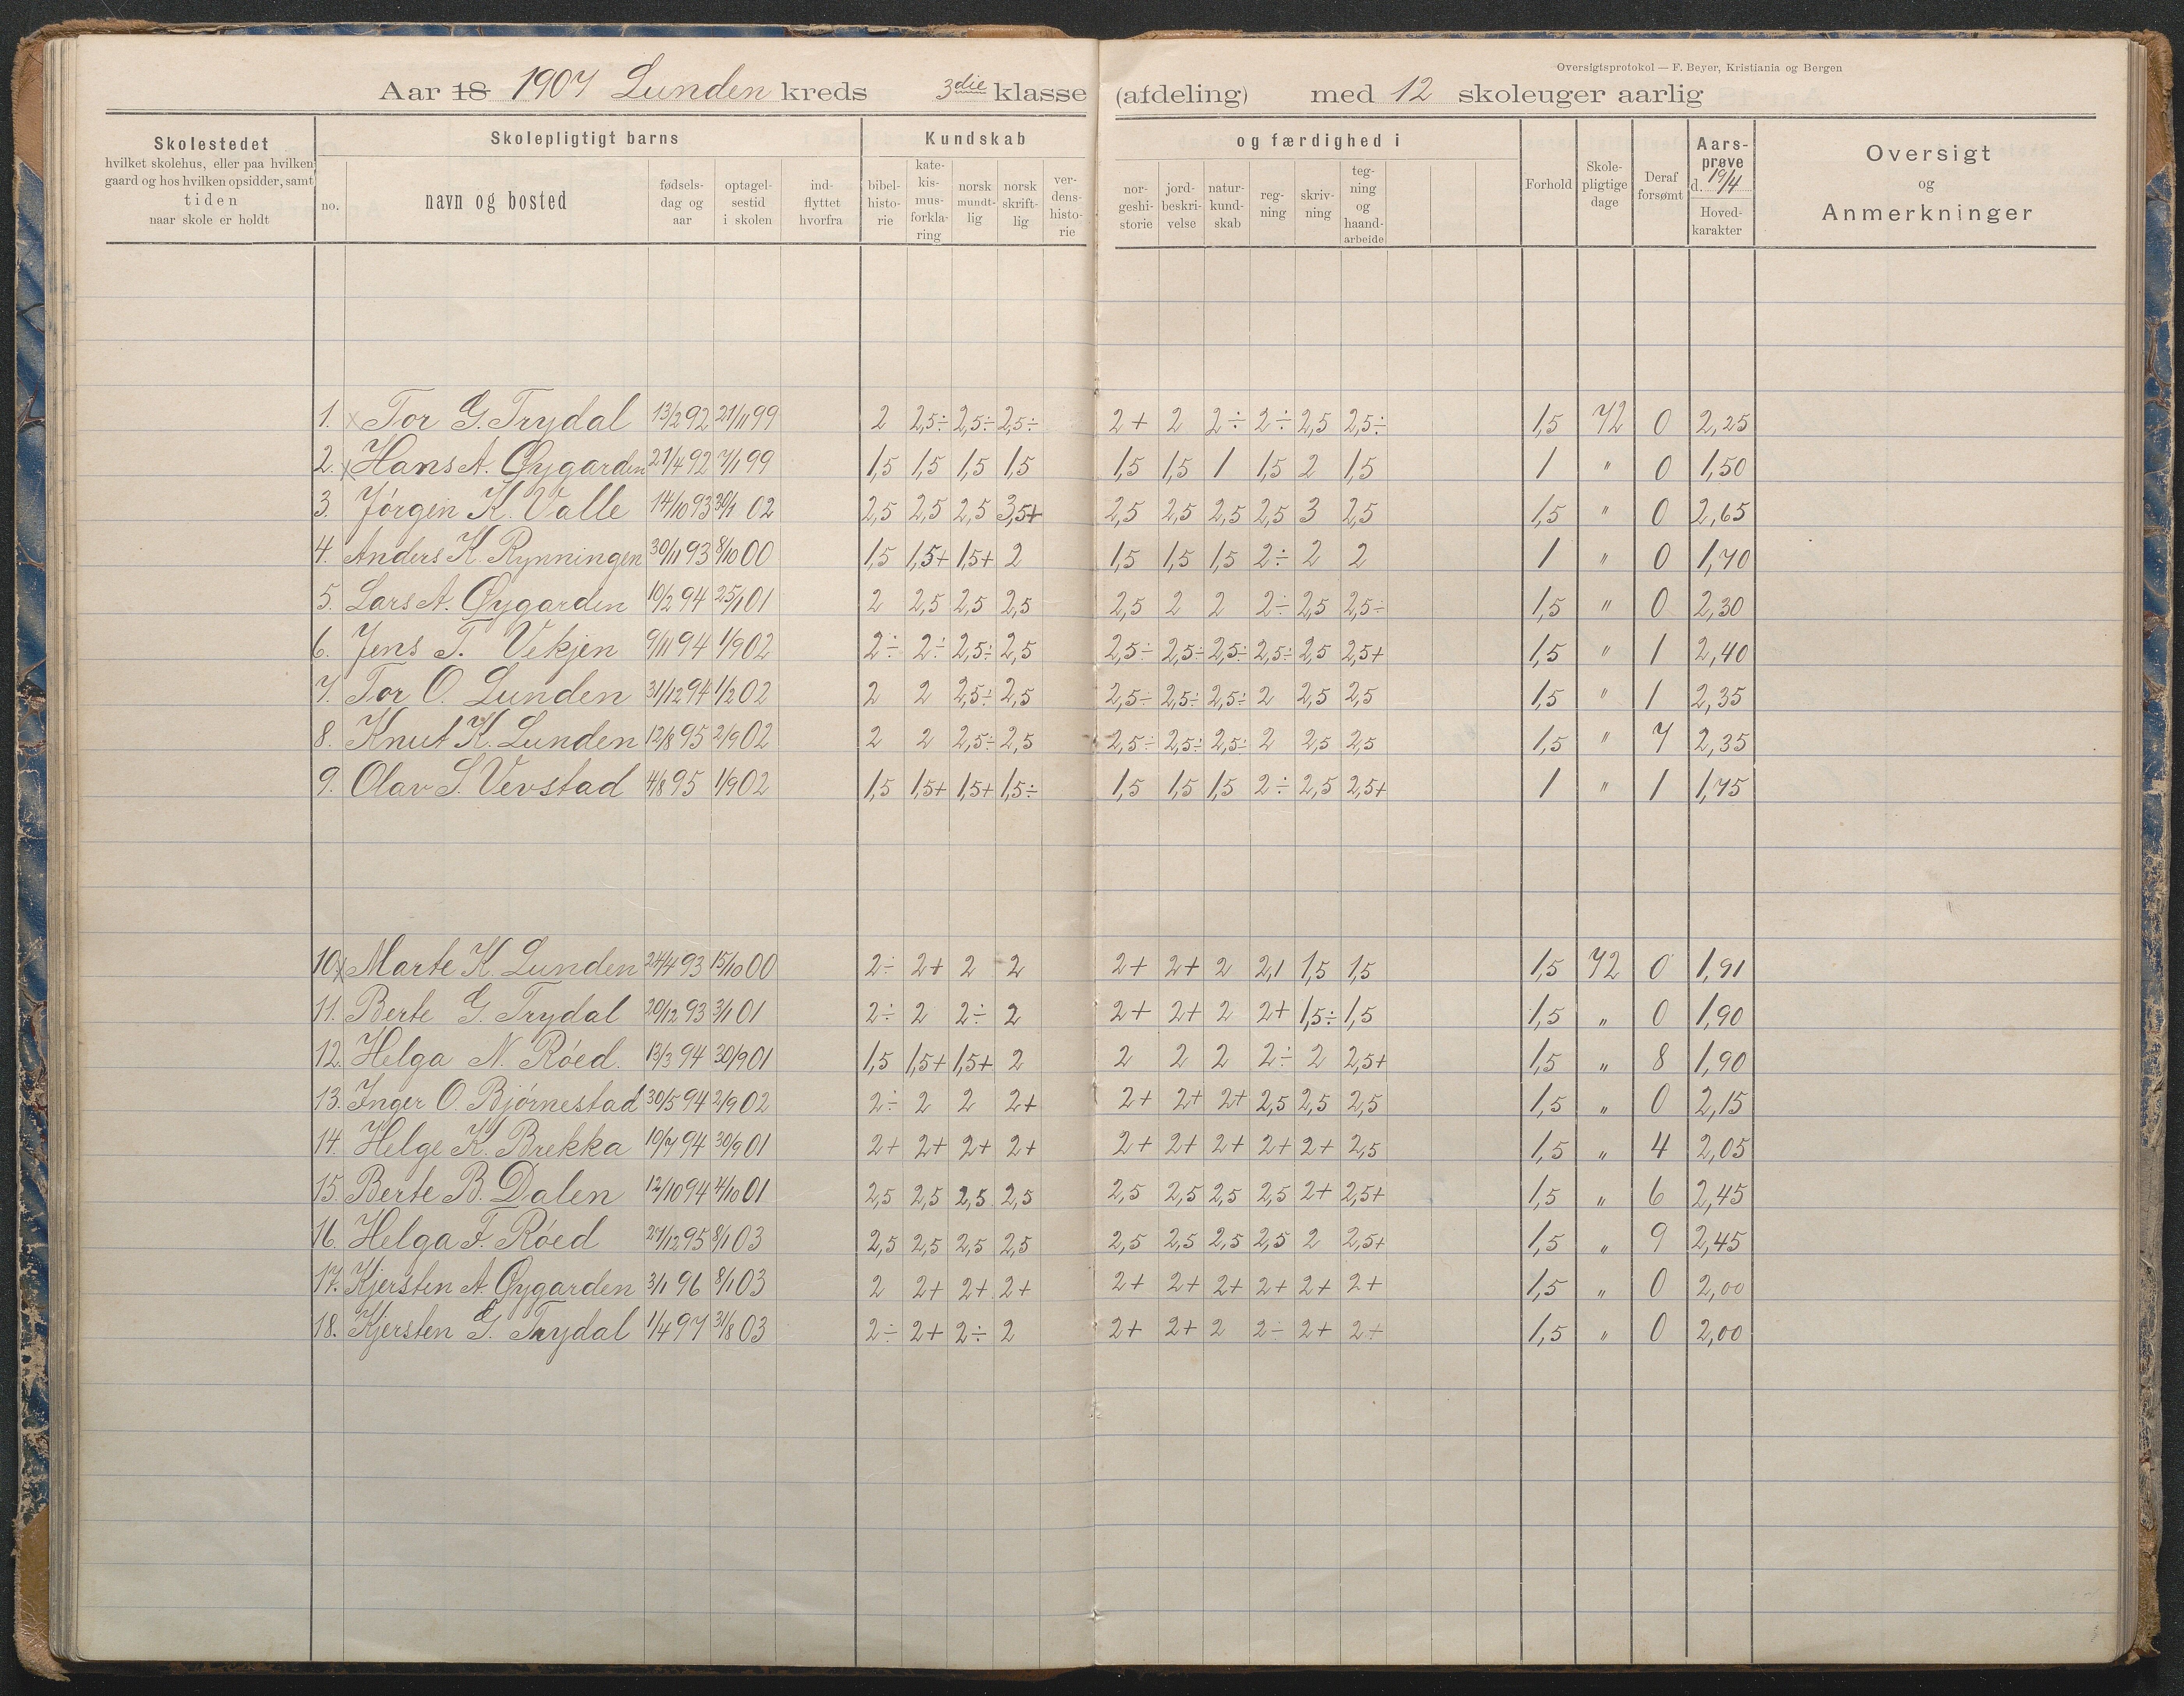 Oversigtsprotokol — F. Beyer, Kristiania og Bergen
Aar 18 1907 Lunden kreds 3die klasse (afdeling) med 12 skoleuger aarlig
Skolestedet hvilket skolehus, eller paa hvilken gaard og hos hvilken opsidder, samt tiden naar skole er holdt
Skolepligtigt barns
no. navn og bosted fødsels-dag og aar optagel-sestid i skolen ind-flyttet hvorfra
Kundskab og færdighed i
bibel-histo-rie kate-kis-mus-forkla-ring norsk mundt-lig norsk skrift-lig ver-dens-histo-rie nor-geshi-storie jord-beskri-velse natur-kund-skab reg-ning skriv-ning teg-ning og haand-arbeide
Forhold Skole-pligtige dage Deraf forsømt Aars-prøve d. 19/4 Hoved-karakter
Oversigt og Anmerkninger
1. x Tor G. Trydal 13/2 92 21/11 99 2 2,5÷ 2,5÷ 2,5÷ 2+ 2 2÷ 2÷ 2,5 2,5÷ 1,5 72 0 2,25
2. x Hans A. Øygarden 21/4 92 7/1 99 1,5 1,5 1,5 1,5 1,5 1,5 1 1,5 2 1,5 1 " 0 1,50
3. Jørgen K. Valle 14/10 93 30/1 02 2,5 2,5 2,5 3,5+ 2,5 2,5 2,5 2,5 3 2,5 1,5 " 0 2,65
4. Anders K. Rynningen 30/11 93 8/10 00 1,5 1,5+ 1,5+ 2 1,5 1,5 1,5 2÷ 2 2 1 " 0 1,70
5. Lars A. Øygarden 10/2 94 25/1 01 2 2,5 2,5 2,5 2,5 2 2 2÷ 2,5 2,5÷ 1,5 " 0 2,30
6. Jens T. Vekjen 9/11 94 1/9 02 2÷ 2÷ 2,5÷ 2,5 2,5÷ 2,5÷ 2,5÷ 2,5÷ 2,5 2,5+ 1,5 " 1 2,40
7. Tor O. Lunden 31/12 94 1/2 02 2 2 2,5÷ 2,5 2,5÷ 2,5÷ 2,5÷ 2 2,5 2,5 1,5 " 1 2,35
8. Knut K. Lunden 12/8 95 2/9 02 2 2 2,5÷ 2,5 2,5÷ 2,5÷ 2,5÷ 2 2,5 2,5 1,5 " 7 2,35
9. Olav S. Vevstad 4/8 95 1/9 02 1,5 1,5+ 1,5+ 1,5÷ 1,5 1,5 1,5 2÷ 2,5 2,5+ 1 " 1 1,75
10 x Marte K. Lunden 24/4 93 15/10 00 2÷ 2+ 2 2 2+ 2+ 2 2,1 1,5 1,5 1,5 72 0 1,91
11. Berte G. Trydal 20/12 93 3/1 01 2÷ 2 2÷ 2 2+ 2+ 2 2+ 1,5÷ 1,5 1,5 " 0 1,90
12. Helga N. Røed. 13/3 94 30/9 01 1,5 1,5+ 1,5+ 2 2 2 2 2÷ 2 2,5+ 1,5 " 8 1,90
13. Inger O. Bjørnestad 30/5 94 2/9 02 2÷ 2 2 2+ 2+ 2+ 2+ 2,5 2,5 2,5 1,5 " 0 2,15
14. Helge K. Brekka 10/7 94 30/9 01 2+ 2+ 2+ 2+ 2+ 2+ 2+ 2+ 2+ 2,5 1,5 " 4 2,05
15. Berte B. Dalen 12/10 94 4/10 01 2,5 2,5 2,5 2,5 2,5 2,5 2,5 2,5 2+ 2,5+ 1,5 " 6 2,45
16. Helga F. Røed 27/12 95 8/1 03 2,5 2,5 2,5 2,5 2,5 2,5 2,5 2,5 2 2,5+ 1,5 " 9 2,45
17. Kjersten A. Øygarden 3/1 96 8/1 03 2 2+ 2+ 2+ 2+ 2+ 2+ 2+ 2+ 2+ 1,5 " 0 2,00
18. Kjersten G. Trydal 1/4 97 31/8 03 2÷ 2+ 2÷ 2 2+ 2+ 2 2÷ 2+ 2+ 1,5 " 0 2,00